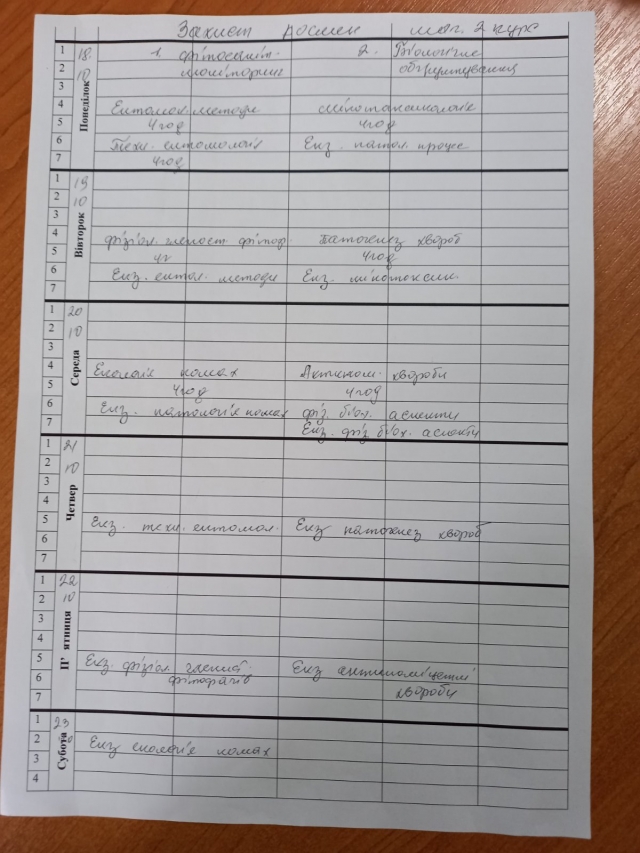 Захист рослин маг. 2 курс
1 18. 1. Фітосаніт. 2. Біологічне
2 10 моніторинг обґрунтування
3
4 Ентомол. методи мікотоксикологія
5 4 год 4 год
6 Техн. ентомологія Екз. патол. процес
7 4 год
Понеділок
1 19
2 10
3
4 фізіол. членист. фітоф. Патогенез хвороб
5 4 г 4 год
6 Екз. ентом. методи Екз. мікотоксик.
7
Вівторок
1 20
2 10
3
4 Екологія комах Актином. хвороби
5 4 год 4 год
6 Екз. патологія комах фіз. біох. аспекти
7 Екз. фіз. біох. аспекти
Середа
1 21
2 10
3
4
5 Екз. техн. ентомол. Екз патогенез хвороб
6
7
Четвер
1 22
2 10
3
4
5 Екз. фізіол. членист. Екз актиноміцетні
6 фітофагів хвороби
7
П' ятниця
1 23
2 Екз екологія комах
3
4
Субота